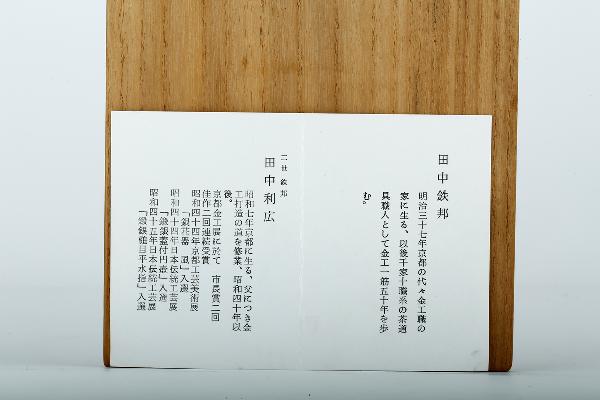 田中鉄邦
明治三十七年京都の代々金工職の
家に生る、以後千家十職系の茶道
具職人として金工一筋五十年を歩
む。
二世鉄邦
田中利広
昭和七年京都に生る、父につき金
工打造の道を修業、昭和四十年以
後。
京都金工展に於て 市長賞二回
佳作二回連続受賞
昭和四十四年京都工芸美術展
「銀花器 風」入選
昭和四十四年日本伝統工芸展
「鍛銀蓋付円壷」入選
昭和四十五年日本伝統工芸展
「鍛銀 目平水指」入選